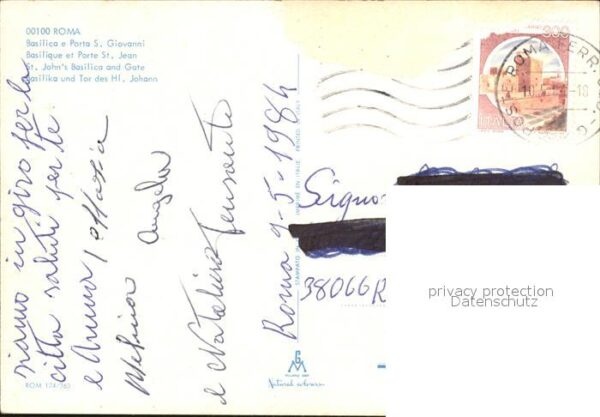 00100 ROMA
Basilica e Porta S. Giovanni
Basilique et Porte St. Jean
St. John's Basilica and Gate
Basilika und Tor des Hl. Johann
siamo in giro per la
città saluti per te
e Anna
Melina Angela
e Natalina
Roma 9-5-1984
STAMPATO IN
IMPRIMÉ EN ITALIE
PRINTED
Signo
38066 R
ROM 174/763
Natural colours
ITALIA
ROMA FERR.
privacy protection
Datenschutz